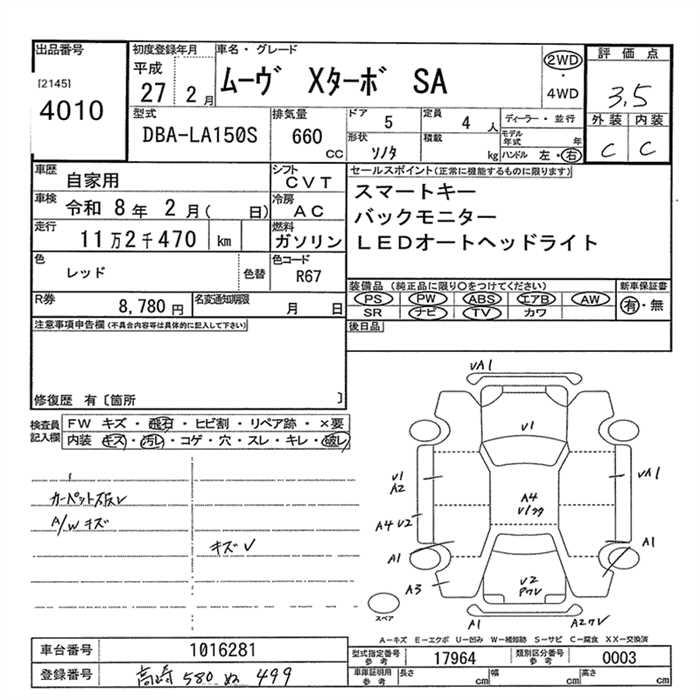 出品番号
[2145]
4010
初度登録年月
平成
27 2 月
車名・グレード
ムーヴ Xターボ SA
2WD
・
4WD
評価点
3.5
外装 内装
C C
型式
DBA-LA150S
排気量
660
CC
ドア
5
定員
4 人
形状
ソノタ
積載
kg
ディーラー・並行
モデル年式 年
ハンドル 左・右
車歴
自家用
シフト
CVT
車検
令和 8 年 2 月( 日)
冷房
AC
走行
11万2千470 km
燃料
ガソリン
色
レッド
色替
色コード
R67
R券
8,780 円
名変通知期限
月 日
セールスポイント(正常に機能するものに限ります)
スマートキー
バックモニター
LEDオートヘッドライト
装備品(純正品に限り○をつけてください)
PS PW ABS エアB AW
SR ナビ TV カワ
新車保証書
有・無
後日品
注意事項申告欄(不具合内容等は具体的に記入して下さい)
修復歴 有〔箇所 〕
検査員記入欄
FW キズ・飛石・ヒビ割・リペア跡・×要
内装 キズ・汚レ・コゲ・穴・スレ・キレ・破レ
A/W キズ
キズ V
VA1
V1
V1
A2
VA1
A4
A4 U2
A1
A1
A3
V2
A1
スペア
A−キズ E−エクボ U−凹み W−補修跡 S−サビ C−腐食 XX−交換済
車台番号
1016281
登録番号
高崎 580 ぬ 499
型式指定番号
参考
17964
類別区分番号
参考
0003
車庫証明用
参考
長さ cm
幅 cm
高さ cm